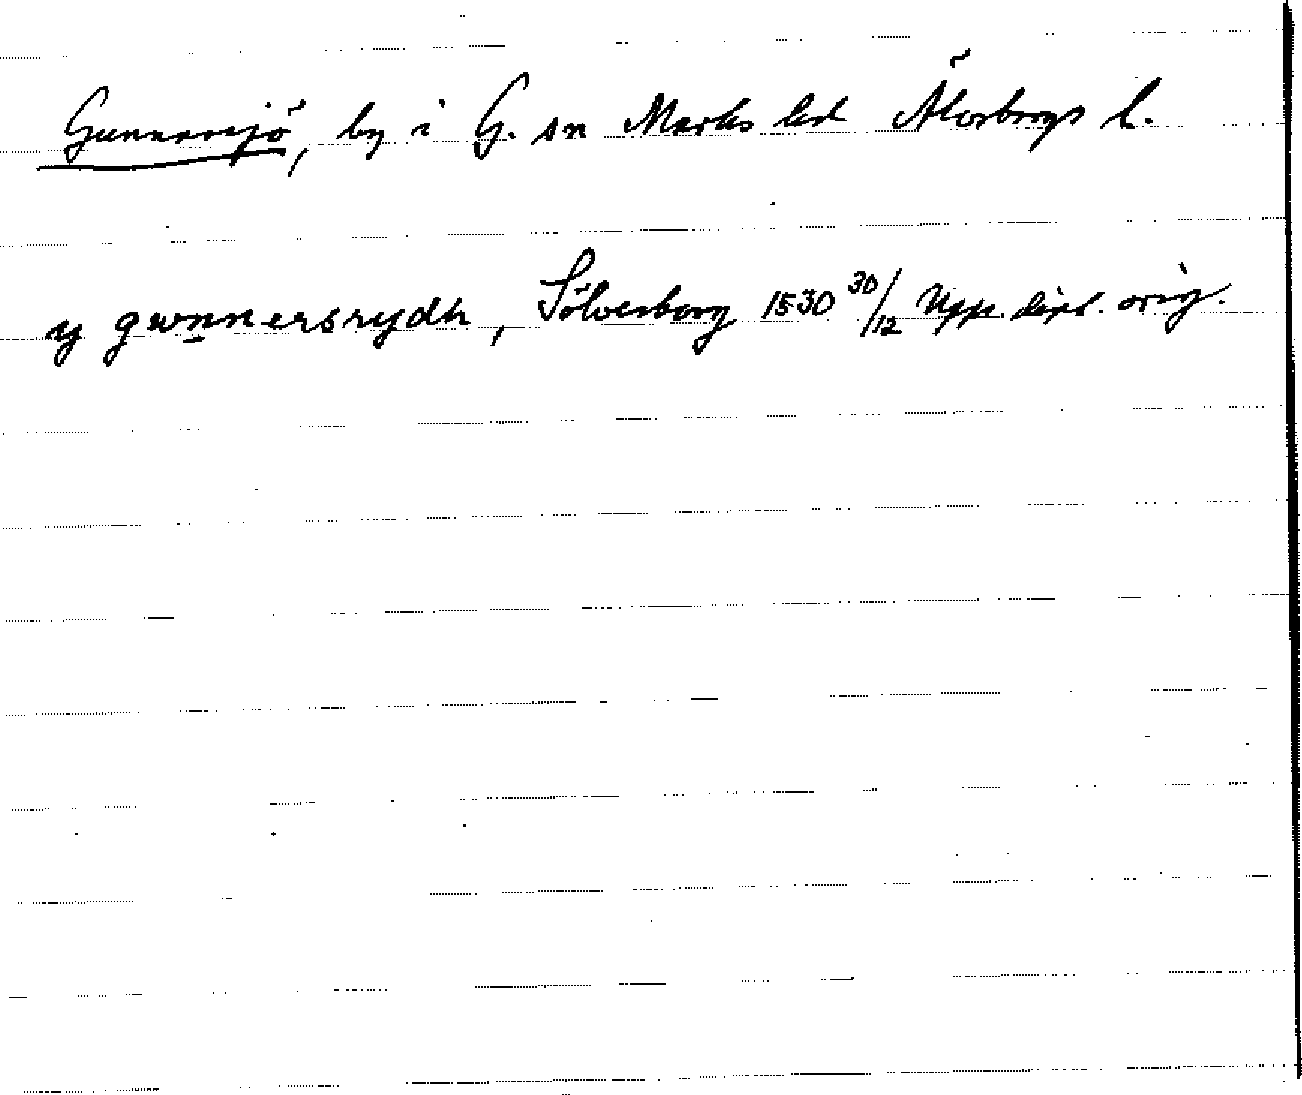 Gunnarsjö, by i G. sn Marks hd Älvsborgs l.
y gwnnersrydh, Sölvesborg 1530 30/12 Upps. dipl. orig.